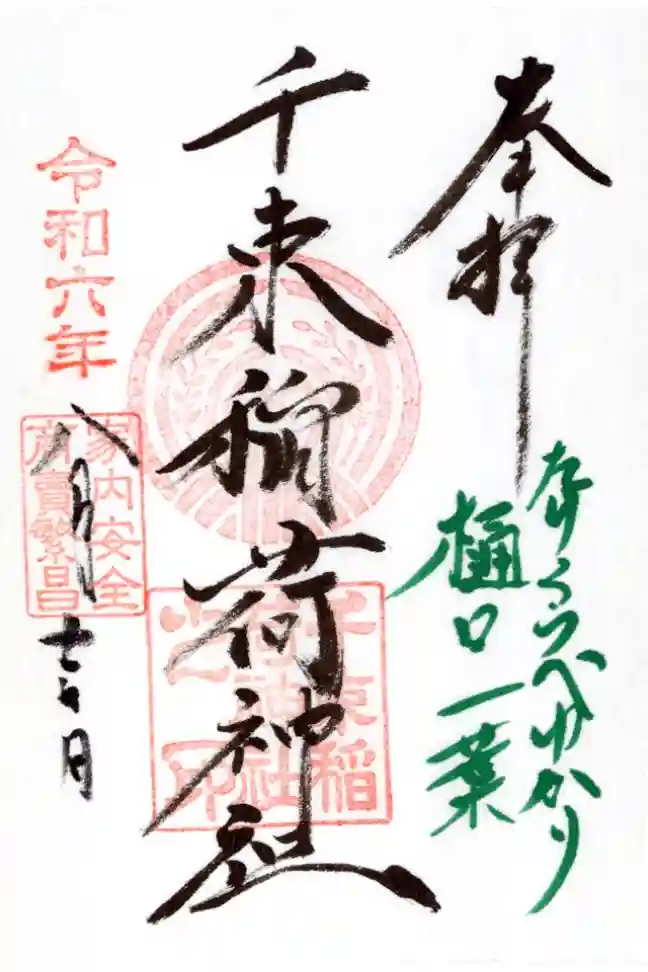 奉拝
たけくらべゆかり
樋口一葉
千束稲荷神社
千束稲荷神社之印
令和六年
八月十六日
家内安全
商賣繁昌